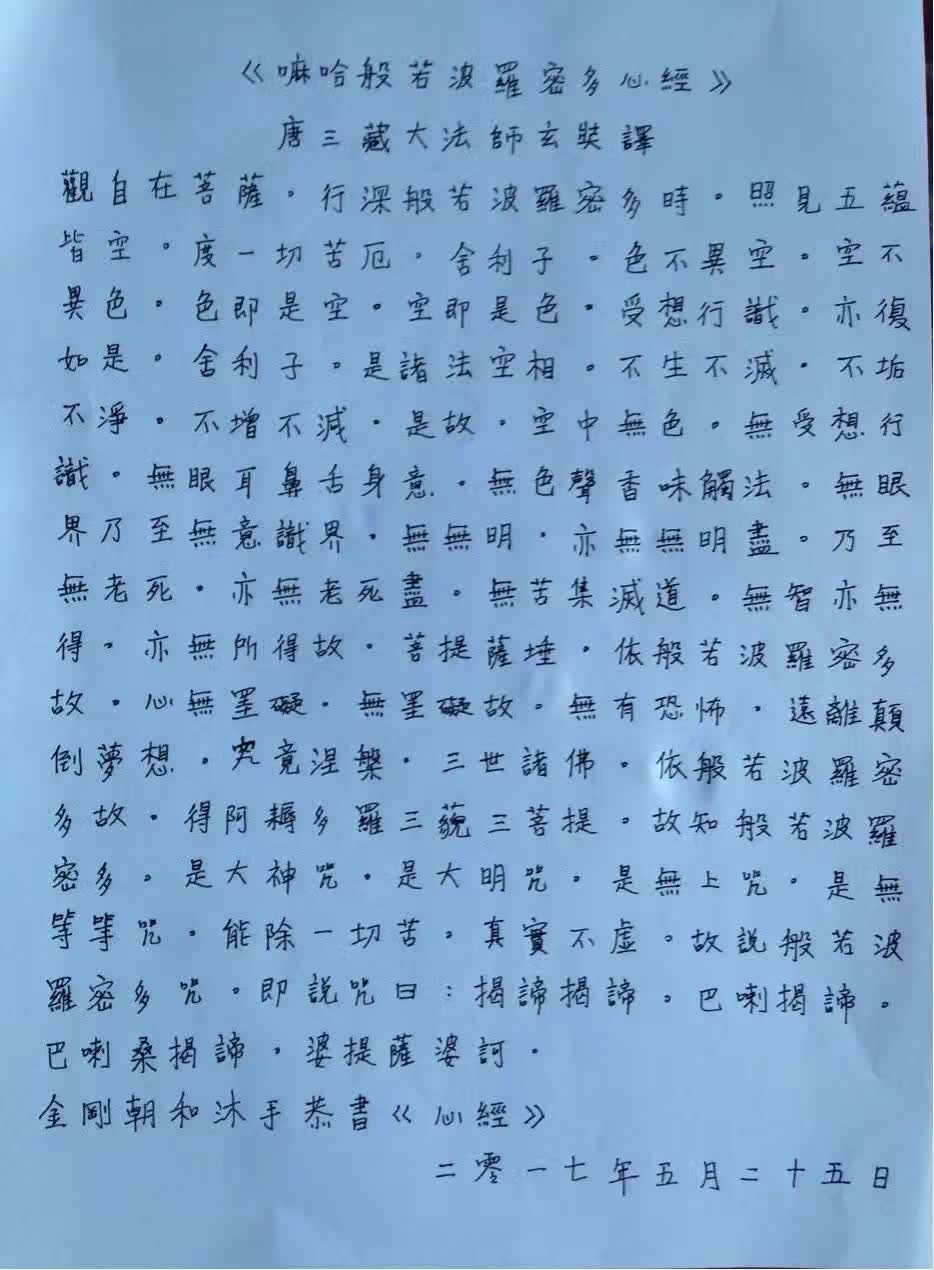 《嘛哈般若波羅密多心經》
唐三藏大法師玄奘譯
觀自在菩薩。行深般若波羅密多時。照見五蘊
皆空。度一切苦厄。舍利子。色不異空。空不
異色。色即是空。空即是色。受想行識。亦復
如是。舍利子。是諸法空相。不生不滅。不垢
不淨。不增不減。是故。空中無色。無受想行
識。無眼耳鼻舌身意。無色聲香味觸法。無眼
界乃至無意識界。無無明。亦無無明盡。乃至
無老死。亦無老死盡。無苦集滅道。無智亦無
得。亦無所得故。菩提薩埵。依般若波羅密多
故。心無罣礙。無罣礙故。無有恐怖。遠離顛
倒夢想。究竟涅槃。三世諸佛。依般若波羅密
多故。得阿耨多羅三藐三菩提。故知般若波羅
密多。是大神咒。是大明咒。是無上咒。是無
等等咒。能除一切苦。真實不虛。故說般若波
羅密多咒。即說咒曰：揭諦揭諦。巴喇揭諦。
巴喇桑揭諦。婆提薩婆訶。
金剛朝和沐手恭書《心經》
二零一七年五月二十五日